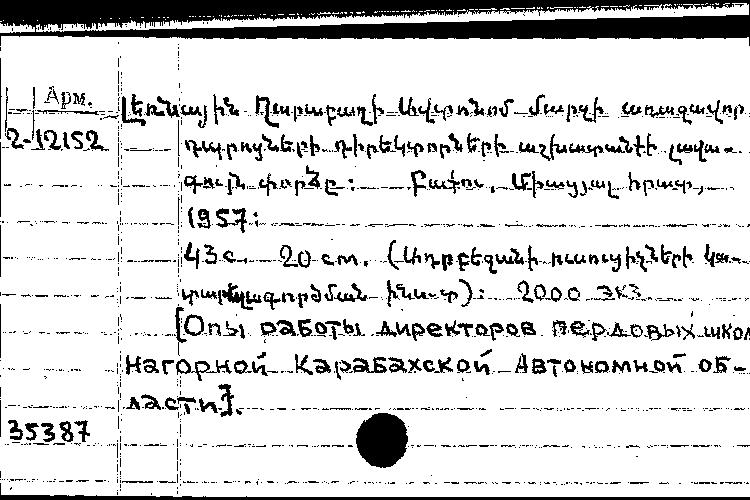 Арм.
Լեռնային Ղարաբաղի Ավտոնոմ մարզի առաջավոր
2-12152
դպրոցների դիրեկտորների աշխատանքի լավա-
գույն փորձը: Բաքու, Միացյալ հրատ.,
1957:
43 с. 20 см. (Ադրբեջանի ուսուցիչների կա-
տարելագործման ինստ-տ): 2000 экз.
[Опы работы директоров пердовых школ
Нагорной Карабахской Автономной об-
ласти].
35387